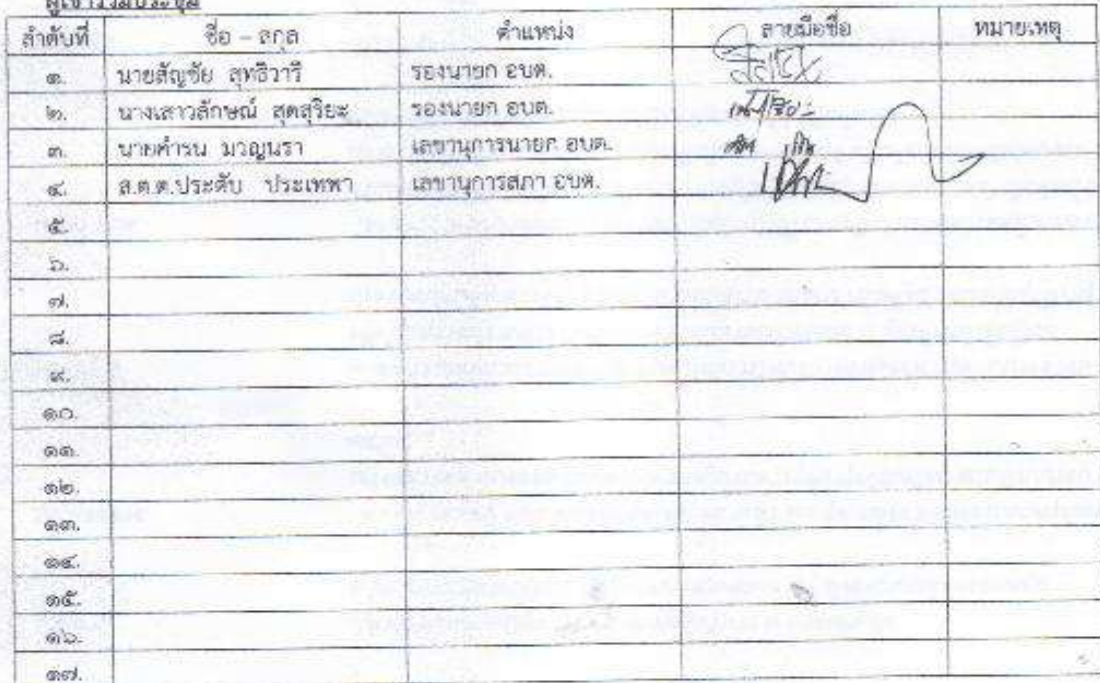 ผู้เข้าร่วมประชุม
ลำดับที่ ชื่อ - สกุล ตำแหน่ง ลายมือชื่อ หมายเหตุ
๑. นายสัญชัย สุทธิวารี รองนายก อบต.
๒. นางเสาวลักษณ์ สุดสุริยะ รองนายก อบต.
๓. นายคำรน มวญนรา เลขานุการนายก อบต.
๔. ส.ต.ต.ประดับ ประเทพา เลขานุการสภา อบต.
๕.
๖.
๗.
๘.
๙.
๑๐.
๑๑.
๑๒.
๑๓.
๑๔.
๑๕.
๑๖.
๑๗.